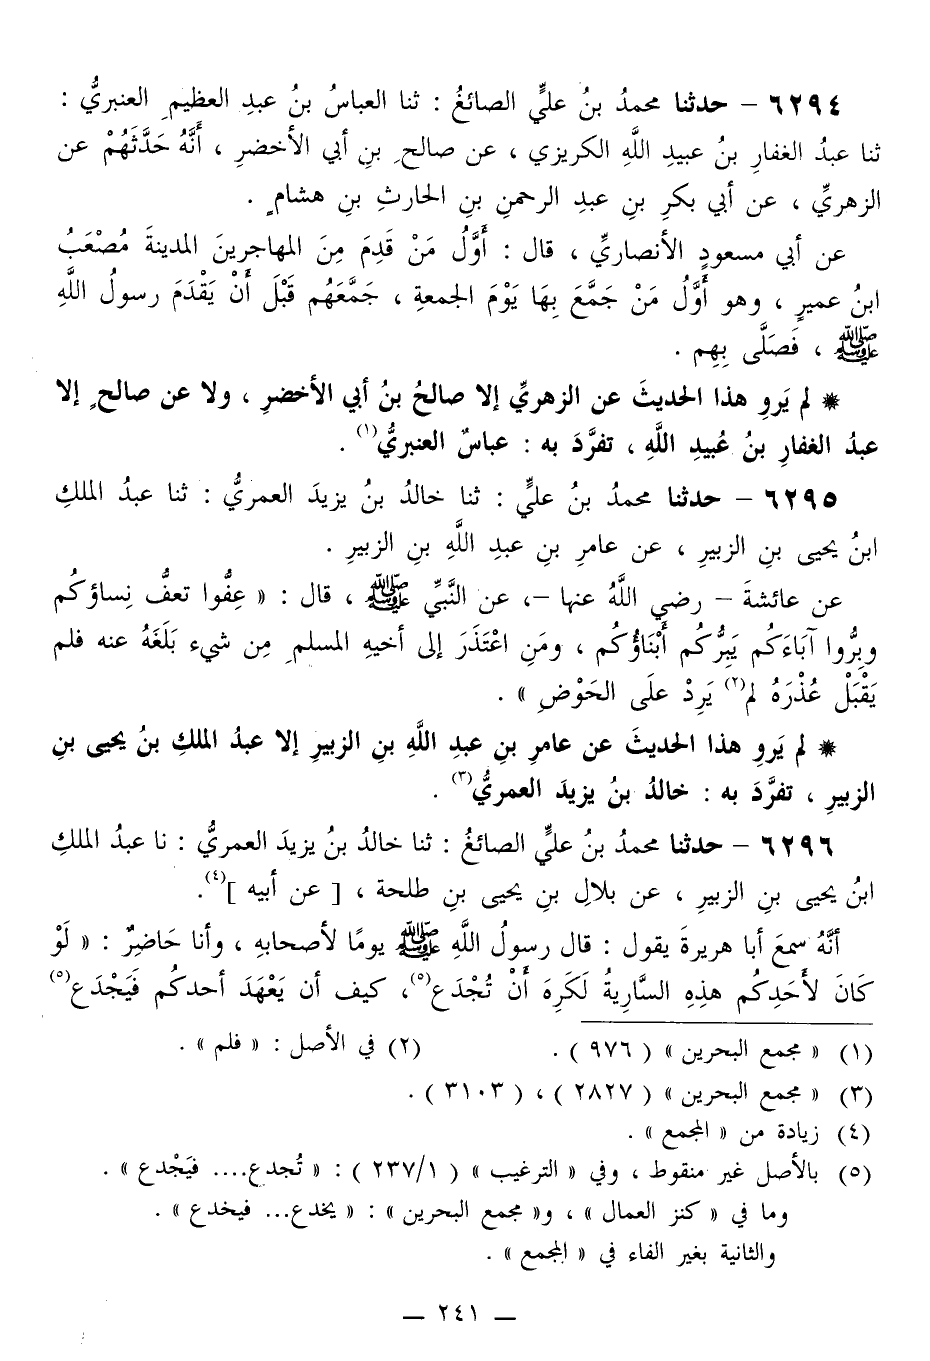 ٦٢٩٤ – حدثنا محمدُ بنُ عليٍّ الصائغُ : ثنا العباسُ بنُ عبدِ العظيمِ العنبريُّ :
ثنا عبدُ الغفارِ بنُ عبيدِ اللَّهِ الكريزي ، عن صالحِ بنِ أبي الأخضرِ ، أَنَّهُ حَدَّثَهُمْ عن
الزهريِّ ، عن أبي بكرِ بنِ عبدِ الرحمنِ بنِ الحارثِ بنِ هشامٍ .
عن أبي مسعودٍ الأنصاريِّ ، قال : أَوَّلُ مَنْ قَدِمَ مِنَ المهاجرينَ المدينةَ مُصْعَبُ
ابنُ عميرٍ ، وهو أَوَّلُ مَنْ جَمَّعَ بِهَا يَوْمَ الجمعةِ ، جَمَّعَهُم قَبْلَ أَنْ يَقْدَمَ رسولُ اللَّهِ
ﷺ ، فَصَلَّى بِهِم .
* لم يَروِ هذا الحديثَ عن الزهريِّ إلا صالحُ بنُ أبي الأخضرِ ، ولا عن صالحٍ إلا
عبدُ الغفارِ بنُ عُبيدِ اللَّهِ ، تفرَّدَ به : عباسٌ العنبريُّ(١) .
٦٢٩٥ – حدثنا محمدُ بنُ عليٍّ : ثنا خالدُ بنُ يزيدَ العمريُّ : ثنا عبدُ الملكِ
ابنُ يحيى بنِ الزبيرِ ، عن عامرِ بنِ عبدِ اللَّهِ بنِ الزبيرِ .
عن عائشةَ – رضي اللَّهُ عنها –، عن النَّبيِّ ﷺ ، قال : « عِفُّوا تعفُّ نِساؤكُم
وبِرُّوا آبَاءَكُم يَبِرُّكُم أَبْنَاؤُكُم ، ومَنِ اعْتَذَرَ إلى أخيهِ المسلمِ مِن شيء بَلَغَهُ عنه فلم
يَقْبَلْ عُذْرَهُ لم(٢) يَرِدْ علَى الحَوْضِ » .
* لم يَروِ هذا الحديثَ عن عامرِ بنِ عبدِ اللَّهِ بنِ الزبيرِ إلا عبدُ الملكِ بنُ يحيى بنِ
الزبيرِ ، تفرَّدَ به : خالدُ بنُ يزيدَ العمريُّ(٣) .
٦٢٩٦ – حدثنا محمدُ بنُ عليٍّ الصائغُ : ثنا خالدُ بنُ يزيدَ العمريُّ : نا عبدُ الملكِ
ابنُ يحيى بنِ الزبيرِ ، عن بلالِ بنِ يحيى بنِ طلحة ، [ عن أبيه ](٤).
أنَّهُ سمعَ أبا هريرةَ يقول : قال رسولُ اللَّهِ ﷺ يومًا لأصحابهِ ، وأنا حَاضِرٌ : « لَوْ
كَانَ لأَحَدِكُم هذِهِ السَّاريةُ لَكَرِهَ أَنْ تُجْدَع(٥)، كيف أن يَعْهَدَ أحدكُم فَيَجْدَع(٥)
(١) « مجمع البحرين » ( ٩٧٦ ) . (٢) في الأصل : « فلم » .
(٣) « مجمع البحرين » ( ٢٨٢٧ ) ، ( ٣١٠٣ ) .
(٤) زيادة من « المجمع » .
(٥) بالأصل غير منقوط ، وفي « الترغيب » ( ٢٣٧/١ ) : « تُجدع.... فيَجْدع » .
وما في « كنز العمال » ، و« مجمع البحرين » : « يخدع... فيخدع » .
والثانية بغير الفاء في « المجمع » .
— ٢٤١ —